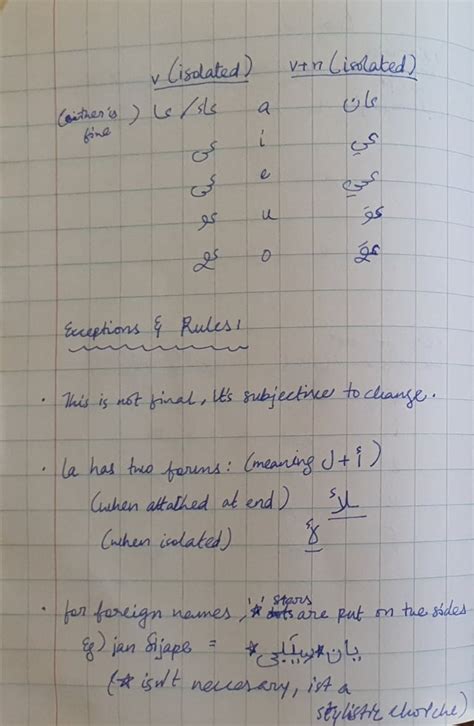 v (isolated) v+n (isolated)
(either is fine) عا / عاد a عان
عى i عي
عى e عي
عو u عوَ
عو o
Exceptions & Rules:
• This is not final, it's subjective to change.
• la has two forms: (meaning ل + أ)
(when attached at end)
(when isolated)
• for foreign names, '*' stars are put on the sides
Eg) jan Sijape =
(* isn't necessary, ist a
stylistic choiche)